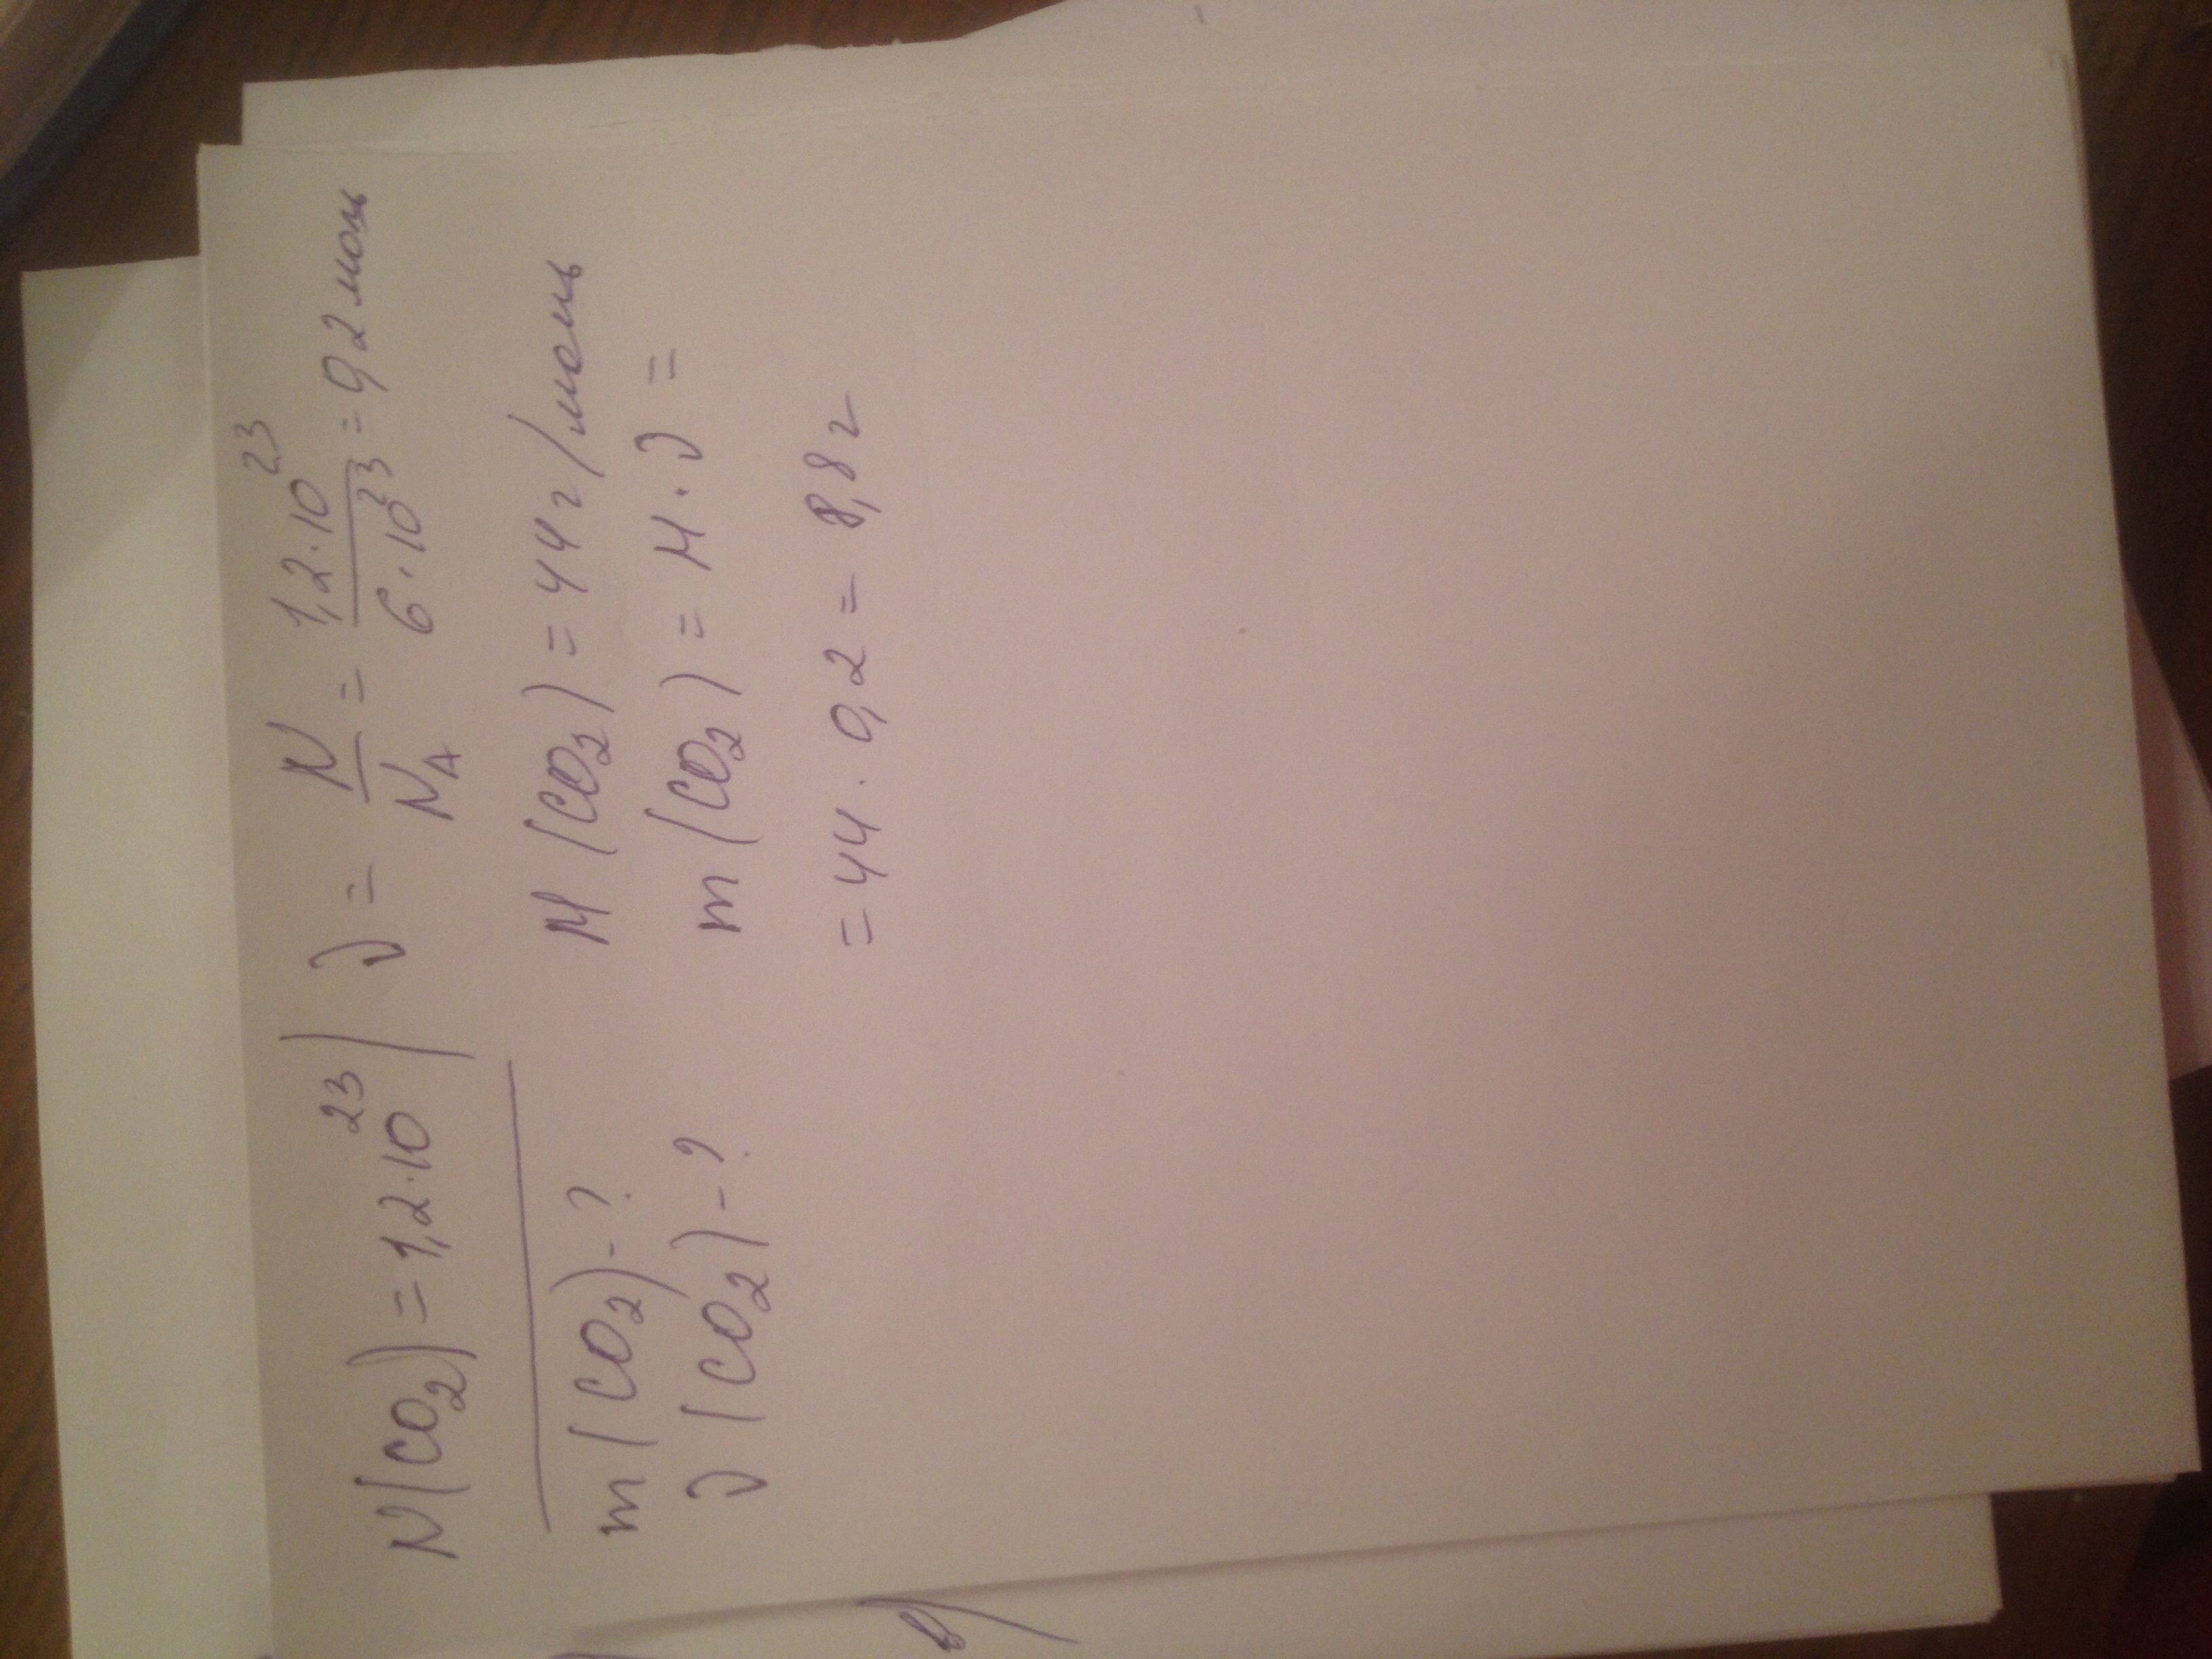 N(CO₂) = 1,2·10²³
m(CO₂) - ?
ν(CO₂) - ?
ν = N/Nᴀ = 1,2·10²³/6·10²³ = 0,2 моль
M(CO₂) = 44 г/моль
m(CO₂) = M·ν =
= 44·0,2 = 8,8 г
в)